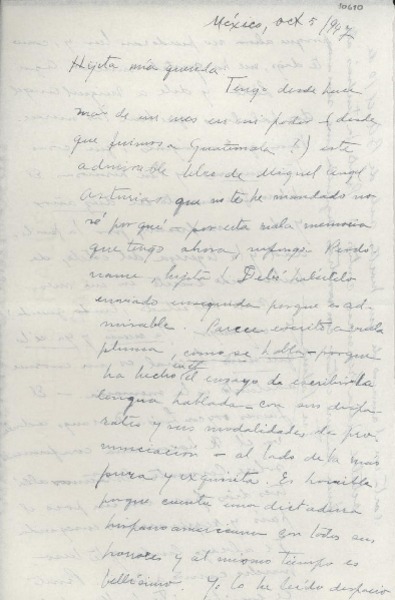 10610
México, oct 5/947
Hijita mía querida
Tengo desde hace
más de un mes en mi poder (desde
que fuimos a Guatemala) este
admirable libro de Miguel Angel
Asturias que no te he mandado no
sé por qué por esta mala memoria
que tengo ahora Perdó
name, hijita! Debí habértelo
enviado enseguida porque es ad-
mirable. Parece escrito a vuela
pluma, como se habla – porque
ha hecho el ensayo de escribir la
lengua hablada – con sus dispa-
rates y sus modalidades de pro-
nunciación – al lado de la más
pura y exquisita. Es horrible
porque cuenta una dictadura
hispanoamericana con todos sus
horrores y al mismo tiempo es
bellísimo. Yo lo he leído despacio